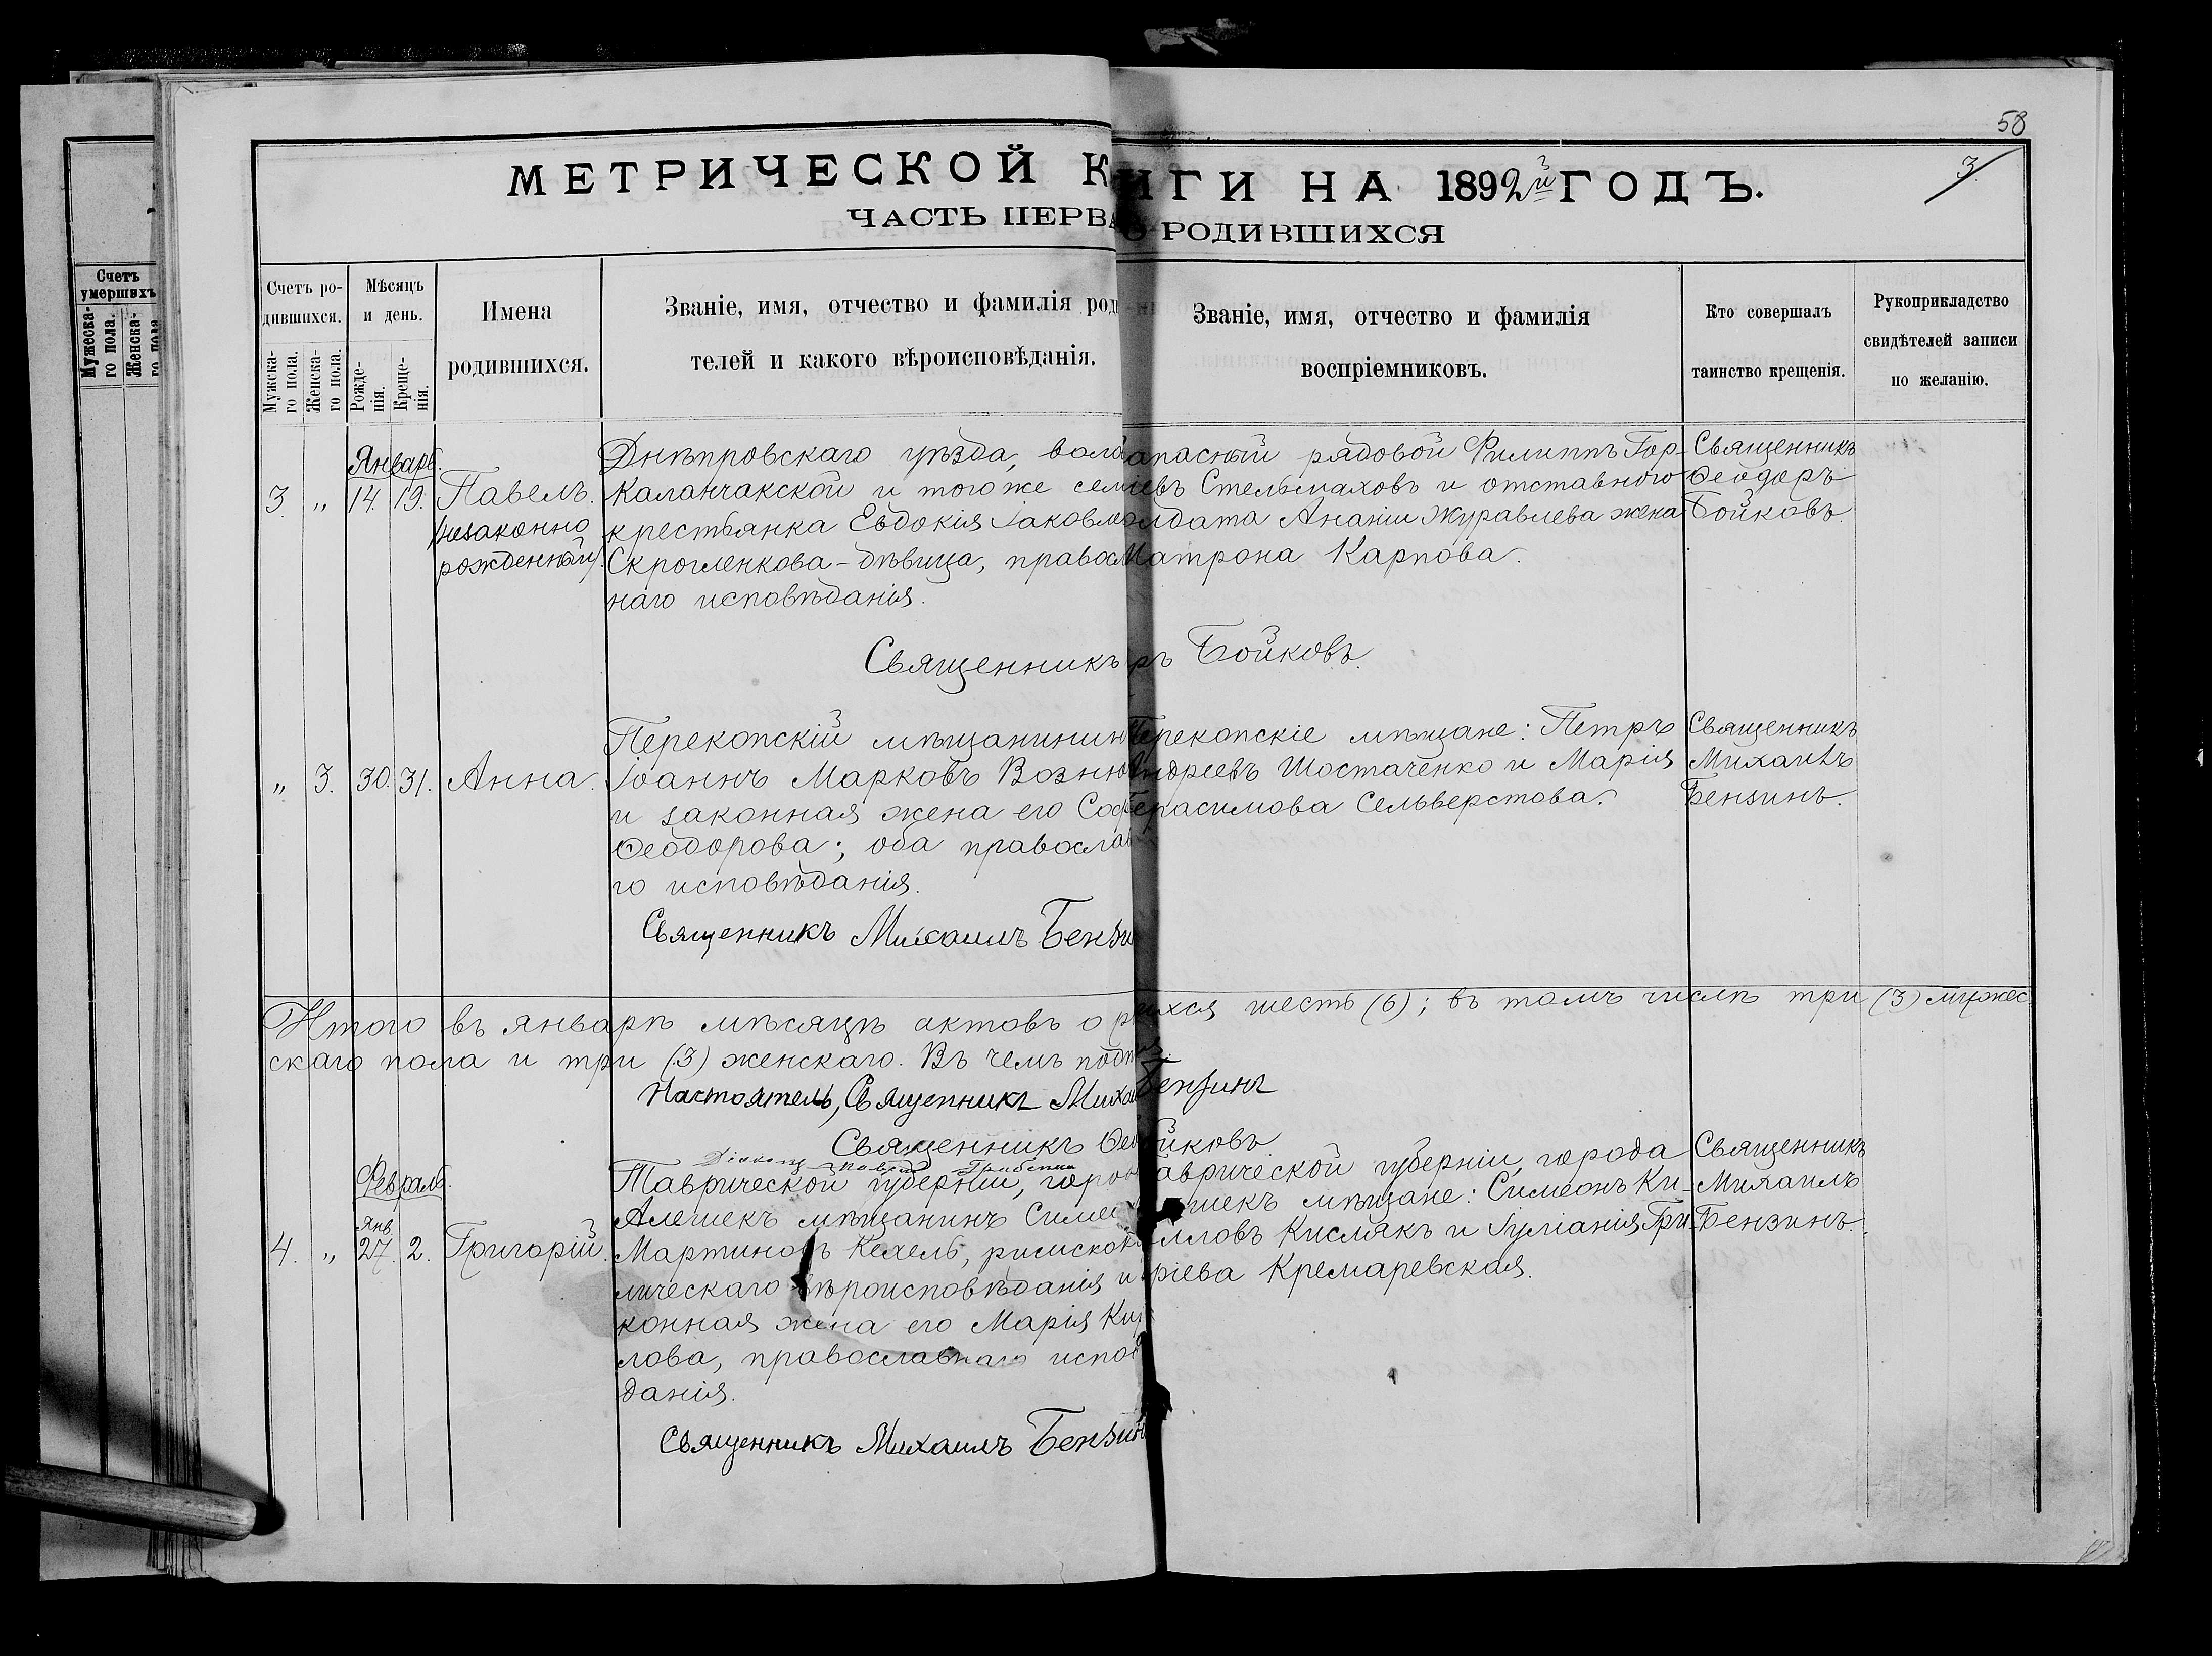 58
3
МЕТРИЧЕСКОЙ К
ИГИ НА 1892й ГОДЪ.
ЧАСТЬ ПЕРВА
О РОДИВШИХСЯ
Счетъ умершихъ
Мужеска-го пола.
Женска-го пола
Счетъ ро-дившихся.
Мужска-го пола.
Женска-го пола.
Мѣсяцъ и день.
Рожде-нія.
Креще-нія.
Имена родившихся.
Званіе, имя, отчество и фамилія род
телей и какого вѣроисповѣданія.
Званіе, имя, отчество и фамилія
воспріемниковъ.
Кто совершалъ
таинство крещенія.
Рукоприкладство
свидѣтелей записи
по желанію.
Январь.
3. " 14. 19. Павелъ.
незаконно
рожденный.
Днѣпровскаго уѣзда, воло
Каланчакской и тогоже се
крестьянка Евдокія Іаковл
Скромленкова - дѣвица, правос
наго исповѣданія.
апасный рядовой Филиппъ Гор-
евъ Стельмаховъ и отставного
олдата Ананіи Журавлева жена
Матрона Карпова.
Священникъ
Ѳеодоръ
Бойковъ.
Священникъ
ръ Бойковъ.
" 3. 30. 31. Анна.
Перекопскій мѣщанинъ
Іоаннъ Марковъ Возню
и законная жена его Соф
Ѳеодорова; оба правосла
го исповѣданія.
Перекопскіе мѣщане: Петръ
Андреевъ Шостаченко и Марія
Герасимова Сельверстова.
Священникъ
Михаилъ
Бензинъ.
Священникъ Михаилъ Бензи
Итого въ январѣ мѣсяцѣ актовъ о р
ихся шесть (6); въ томъ числѣ три (3) мужес
скаго пола и три (3) женскаго. Въ чемъ подп
Настоятель, Священникъ Миха
Бензинъ
Священникъ Ѳео
йковъ
Діаконъ Павелъ
Февраль.
Янв.
4. " 27. 2. Григорій.
Таврической губерніи, горо
Алешекъ мѣщанинъ Симе
Мартиновъ Кехель, римскок
лическаго вѣроисповѣданія и
конная жена его Марія Ки
лова, православнаго испов
данія.
Таврической губерніи, города
шекъ мѣщане: Симеонъ Ки-
лловъ Кислякъ и Іуліанія Гри-
ріева Кремаревская.
Священникъ
Михаилъ
Бензинъ.
Священникъ Михаилъ Бензин